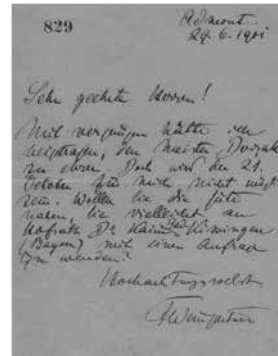 829
Admont
29.6.1901
Sehr geehrte Herren!
Mit vergnügen hätte ich
beigetragen, den Meister Dvorak
zu ehren. Doch wird der 21.
October für mich nicht mögl
sein. Wollen Sie die Güte
haben, Sie vielleicht an
Hofrath Dr. Kaim Kissingen
(Bayern) mit einer Anfrage
zu wenden?
Hochachtungsvollst
FWeingartner